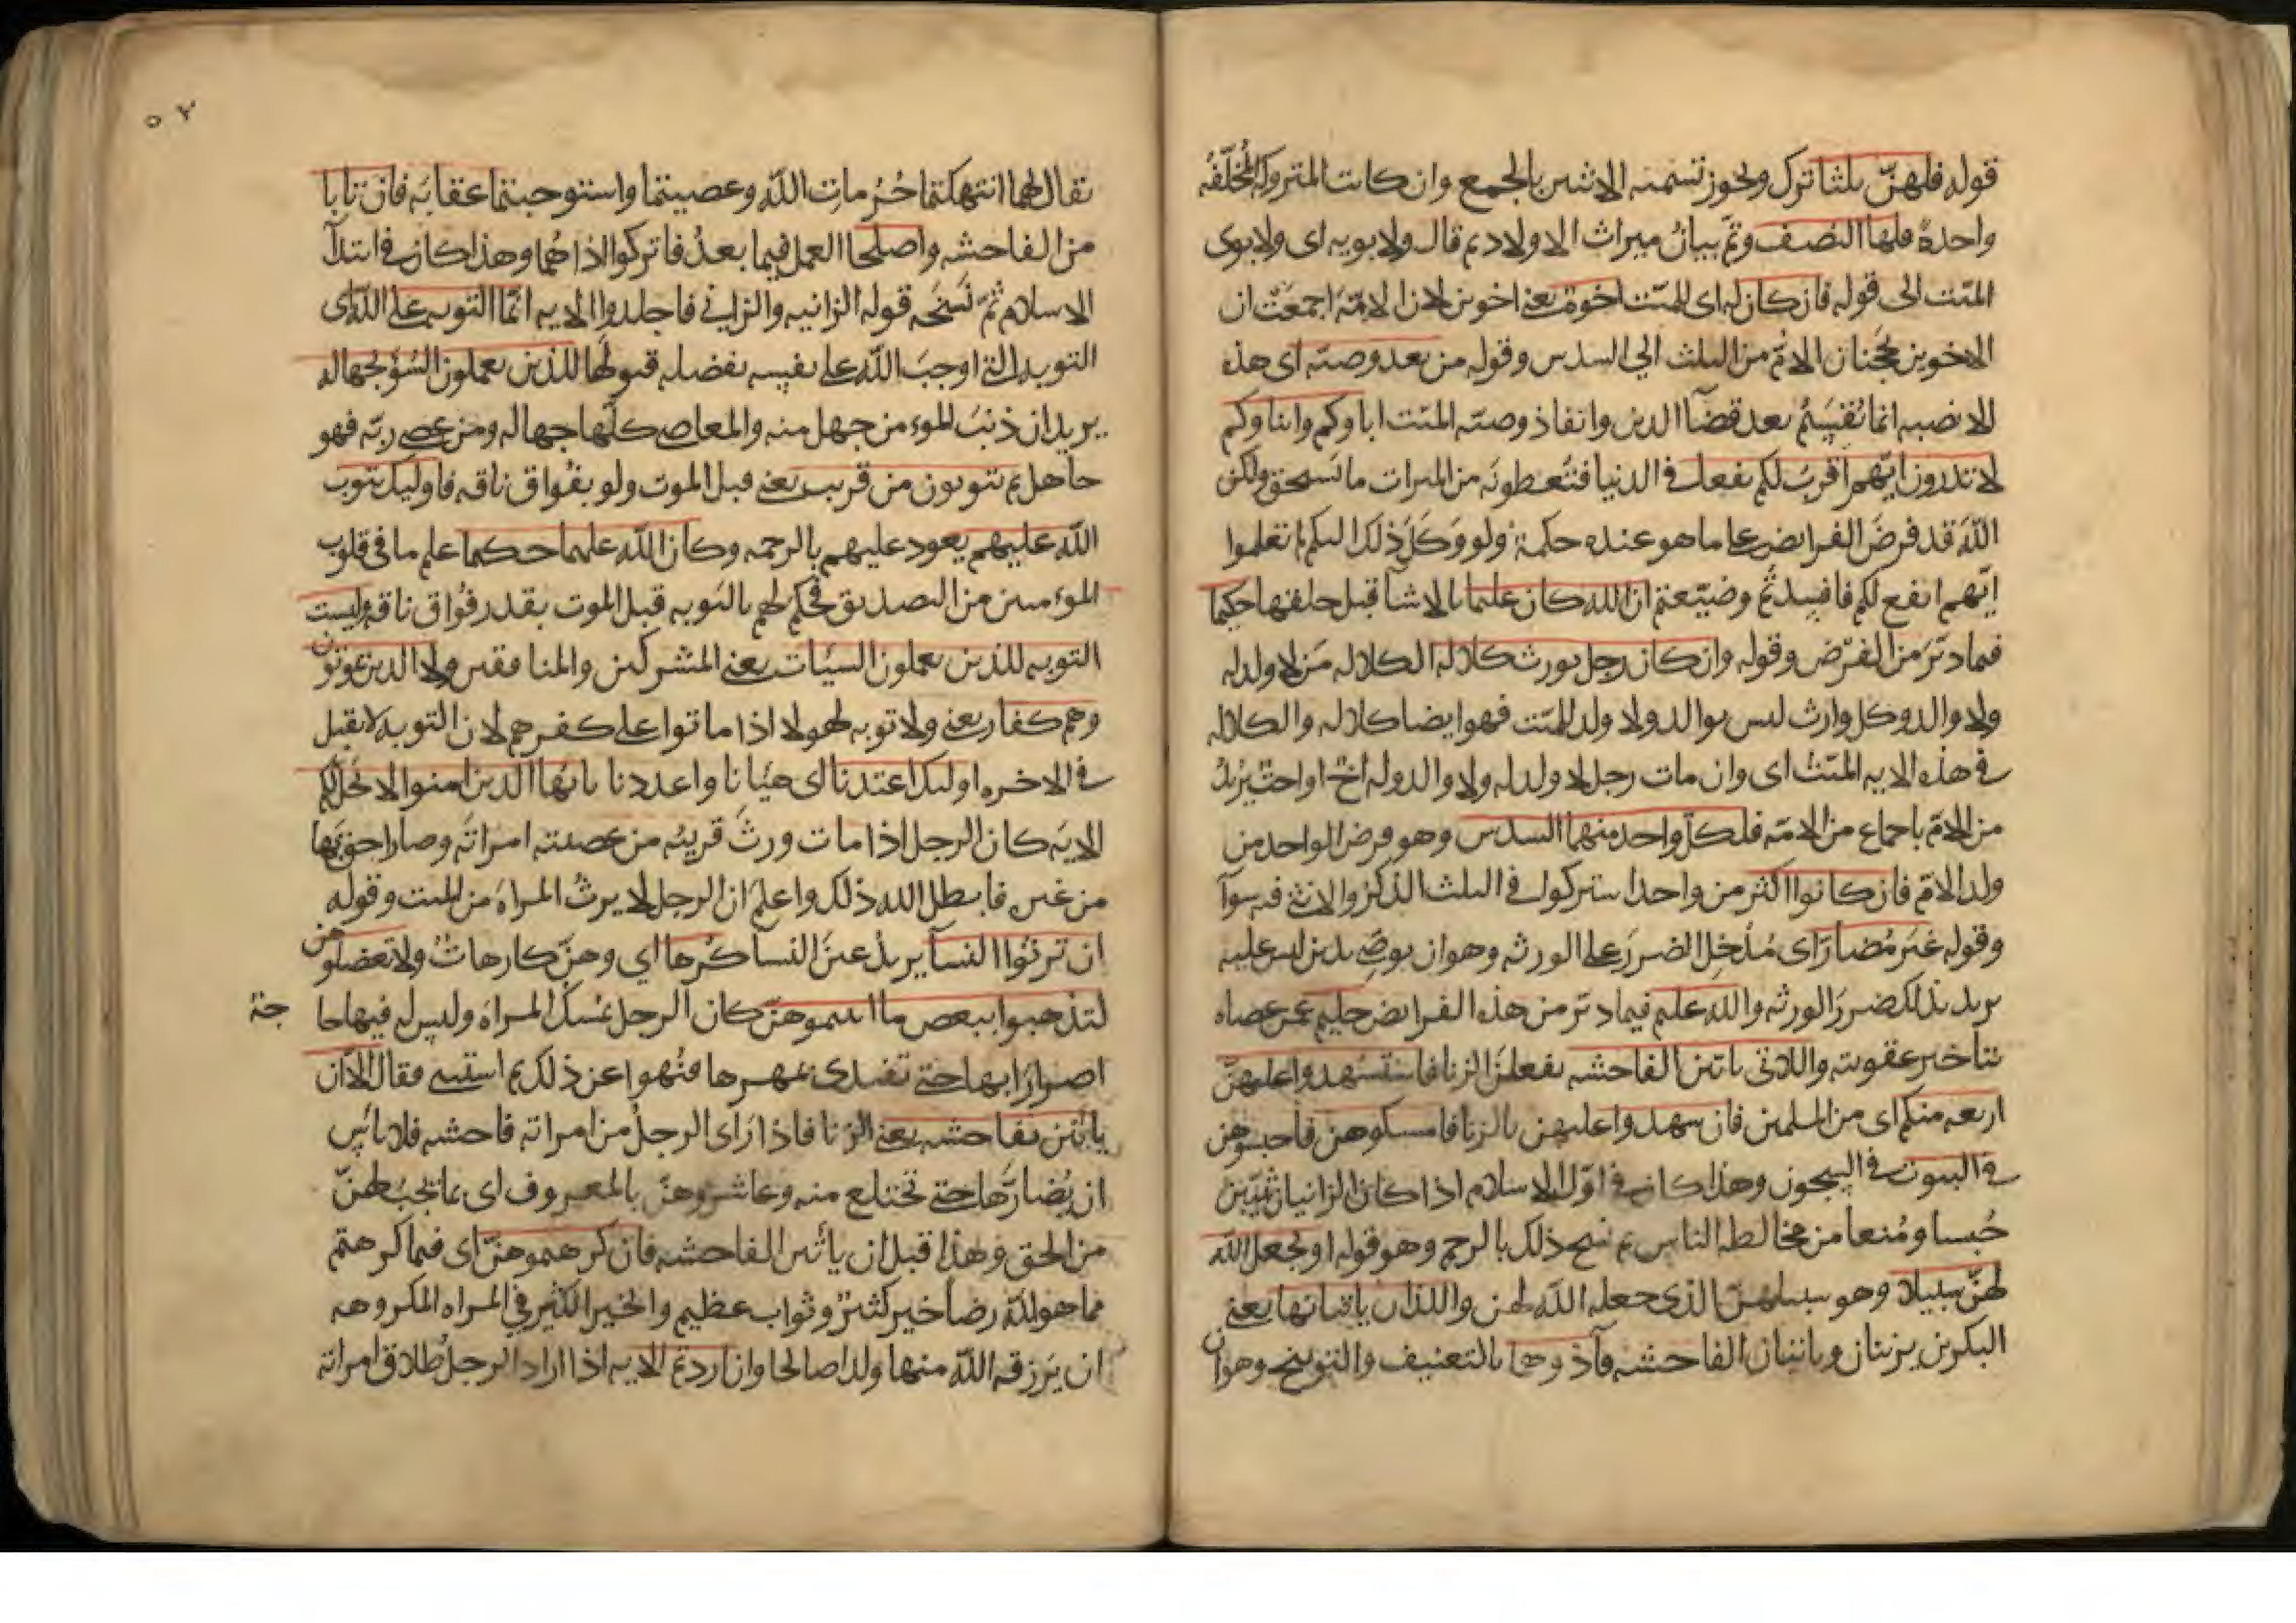 قوله فلهنّ ثلثا ترك ويجوز تسميه الاثنين بالجمع وان كانت المتروكه المُخلّفَه
واحدةً فلها النصف وتمّ بيانُ ميراث الاولاد ثم قال ولابويه اى ولابوى
الميّت الى قوله فان كان له اى للميّت اخوة يعنى اخوين لان الامّة اجمعَتْ ان
الاخوين يحجُبان الامّ من الثلث الى السدس وقوله من بعد وصيّه اى هذه
الانصبه انما تُقْسَمُ بعد قضآ الدين وانفاذ وصيّه الميّت اباوكم وابناوكم
لا تدرون ايّهم اقربُ لكم نفعا فى الدنيا فتُعطونَه من الميراث ما يستحق ولكن
اللهَ قد فرضَ الفرايض على ما هو عنده حكمة ولو وَكَلَ ذلك اليكم لم تعلموا
ايّهم انفع لكم فافسدتُم وضيّعتم ان الله كان عليما بالاشيا قبل خلقها حكيما
فيما دبّرَ من الفرض وقوله وان كان رجل يورث كلاله الكلاله مَن لا ولد له
ولا والد وكل وارث ليس بوالد ولا ولد للميّت فهو ايضا كلاله والكلاله
فى هذه الايه الميّتُ اى وان مات رجل لا ولد له ولا والد وله اخٌ او اختٌ يُريدُ
من الامّ باجماع من الامّه فلكلّ واحد منهما السدس وهو فرض الواحد من
ولد الامّ فان كانوا اكثر من واحد اشتركوا فى الثلث الذكرُ والانثى فيه سوآ
وقوله غيرَ مُضارّ اى مُدْخِل الضررَ على الورثه وهو ان يوصِىَ بدين ليس عليه
يريد بذلك ضررَ الورثه والله عليم فيما دبّر من هذه الفرايض حليم عمّن عصاه
بتاخير عقوبته واللاتى ياتين الفاحشه يفعلنَ الزنا فاستشهدوا عليهنّ
اربعه منكم اى من المسلمين فان شهدوا عليهن بالزنا فامسكوهن فاحبسوهن
فى البيوت فى السجون وهذا كان فى اوّل الاسلام اذا كان الزانيان ثيّبين
حُبسا ومُنعا من مخالطه الناس ثم نسخ ذلك بالرجم وهو قوله او يجعل الله
لهنّ سبيلا وهو سبيلهنّ الذى جعله الله لهن واللذان ياتيانها يعنى
البكرين يزنيان وياتيان الفاحشه فآذوهما بالتعنيف والتوبيخ وهو ان
٥٢
يقال لهما انتهكتما حُرُمات الله وعصيتما واستوجبتما عقابَه فان تابا
من الفاحشه واصلحا العمل فيما بعدُ فاتركوا اذاهُما وهذا كان فى ابتدآ
الاسلام ثمّ نَسَخَه قوله الزانيه والزانى فاجلدوا الايه انّما التوبه على الله اى
التوبه التى اوجبَ الله على نفسه بفضله قبولَها للذين يعملون السُوَ بجهاله
يريد ان ذنبَ المومن جهل منه والمعاصى كلّها جهاله ومن عصى ربّه فهو
جاهل ثم يتوبون من قريب يعنى قبل الموت ولو بفُواق ناقه فاوليك يتوب
الله عليهم يعود عليهم بالرحمه وكان الله عليما حكيما علم ما فى قلوب
المومنين من التصديق فحكم لهم بالتوبه قبل الموت بقدر فُواق ناقه وليست
التوبه للذين يعملون السيّات يعنى المشركين والمنافقين ولا الذين يموتون
وهم كفار يعنى ولا توبه لهولا اذا ماتوا على كفرهم لان التوبه لا تقبل
فى الاخره اوليك اعتدنا اى هيّانا واعددنا يا ايّها الذين امنوا لا يحلّ لكم
الايه كان الرجل اذا مات ورثَ قريبُه من عصبته امراتَه وصار احق بها
من غيره فابطل الله ذلك واعلمَ ان الرجل لا يرثُ المراهَ من الميت وقوله
ان ترثوا النسآ يريد عينَ النسا كُرها اى وهنّ كارهاتٌ ولا تعضلوهن
لتذهبوا ببعض ما اتيتموهنّ كان الرجل يُمسك المراهَ وليس له فيها حاجة
اضرارًا بها حتى تفتدى بمهرها فنُهوا عن ذلك ثم استثنى فقال الا ان
ياتين بفاحشه يعنى الزنا فاذا راى الرجلُ من امراته فاحشه فلا باسَ
ان يُضارَّها حتى تختلع منه وعاشروهنّ بالمعروف اى بما يجبُ لهنّ
من الحق وهذا قبل ان ياتين الفاحشه فان كرهتموهنّ اى فيما كرهتم
مما هو لله رضا خير كثيرٌ وثواب عظيم والخير الكثير فى المراه المكروهه
ان يَرزقه الله منها ولدا صالحا وان اردتم الايه اذا اراد الرجل طلاق امراته